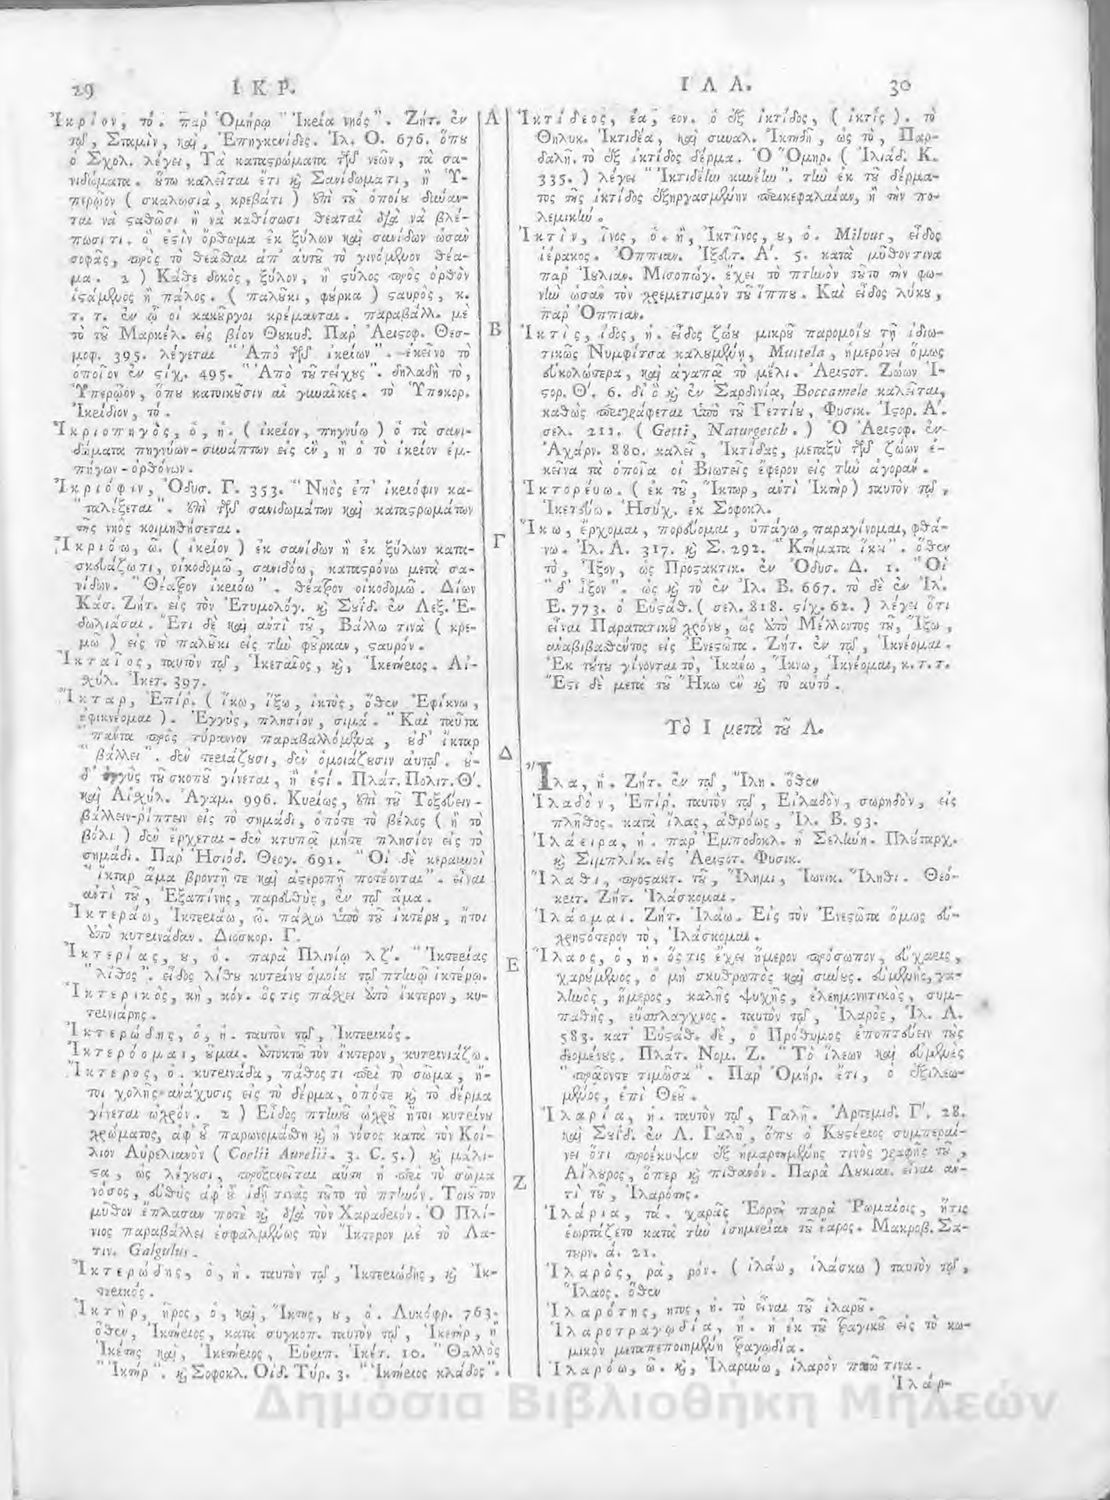 29 ΙΚΡ.
Ἴκριον, τό. παρ' Ὁμήρῳ "Ἴκρια νηός". Ζήτ. ἐν
τῷ, Σταμὶν, καὶ, Ἐπηγκενίδες. Ἰλ. Ο. 676. ὅπου
ὁ Σχολ. λέγει, Τὰ καταστρώματα τῶν νεῶν, τὰ σα-
νιδώματα. οὕτω καλεῖται ἔτι καὶ Σανίδωμά τι, ἢ Ὑ-
περῷον (σκαλωσιὰ, κρεβάτι) ἐπὶ τοῦ ὁποίου δύναν-
ται νὰ σταθῶσι ἢ νὰ καθίσωσι θεαταὶ διὰ νὰ βλέ-
πωσί τι. ὅ ἐστιν ὄρθωμα ἐκ ξύλων καὶ σανίδων ὡσὰν
σοφὰς, πρὸς τὸ θεᾶσθαι ἀπ' αὐτοῦ τὸ γινόμενον θέα-
μα. 2) Κάθε δοκὸς, ξύλον, ἢ στύλος πρὸς ὀρθὸν
ἱστάμενος ἢ πάλος. (παλοῦκι, φούρκα) σταυρὸς, κ.
τ. τ. ἐν ᾧ οἱ κακοῦργοι κρέμανται. παράβαλλ. μὲ
τὸ τοῦ Μαρκέλ. εἰς βίον Θουκυδ. Παρ' Ἀριστοφ. Θεσ-
μοφ. 395. λέγεται "Ἀπὸ τῶν ἰκρίων". ἐκεῖνο τὸ
ὁποῖον ἐν στίχ. 495. "Ἀπὸ τοῦ τείχους". δηλαδὴ τὸ,
Ὑπερῷον, ὅπου κατοικοῦσιν αἱ γυναῖκες. τὸ Ὑποκορ.
Ἰκρίδιον, τό.
Ἰκριοπηγὸς, ὁ, ἡ. (ἰκρίον, πηγνύω) ὁ τὰ σανι-
δώματα πηγνύων-συνάπτων εἰς ἓν, ἢ ὁ τὸ ἰκρίον ἐμ-
πήγων-ὀρθόνων.
Ἰκριόφιν, Ὀδυσ. Γ. 353. "Νηὸς ἐπ' ἰκριόφιν κα-
"ταλέξεται". ἐπὶ τῶν σανιδωμάτων καὶ καταστρωμάτων
τῆς νηὸς κοιμηθήσεται.
Ἰκριόω, ῶ. (ἰκρίον) ἐκ σανίδων ἢ ἐκ ξύλων κατα-
σκευάζω τι, οἰκοδομῶ, σανιδόω, καταστρόνω μετὰ σα-
νίδων. "Θέατρον ἰκριόω". θέατρον οἰκοδομῶ. Δίων
Κάσ. Ζήτ. εἰς τὸν Ἐτυμολόγ. καὶ Σουΐδ. ἐν Λεξ. Ἐ-
δωλιάσαι. Ἔτι δὲ καὶ ἀντὶ τοῦ, Βάλλω τινὰ (κρε-
μῶ) εἰς τὸ παλοῦκι εἰς τὴν φούρκαν, σταυρόν.
Ἰκταῖος, ταυτὸν τῷ, Ἱκεταῖος, καὶ, Ἱκετήσιος. Αἰ-
σχύλ. Ἱκετ. 397.
Ἴκταρ, Ἐπίῤ. (ἵκω, ἵξω, ἱκτὸς, ὅθεν Ἐφίκνω,
ἐφικνέομαι). Ἐγγὺς, πλησίον, σιμά. "Καὶ ταῦτα
"πάντα πρὸς τύραννον παραβαλλόμενα, οὐδ' ἴκταρ
"βάλλει". δὲν πειράζουσι, δὲν ὁμοιάζουσιν αὐτῷ. οὐ-
δ' ἐγγὺς τοῦ σκοποῦ γίνεται, ἢ ἐστί. Πλάτ. Πολιτ. Θ'.
καὶ Αἰσχύλ. Ἀγαμ. 996. Κυρίως, ἐπὶ τοῦ Τοξεύειν-
βάλλειν-ρίπτειν εἰς τὸ σημάδι, ὁπότε τὸ βέλος (ἢ τὸ
βόλι) δὲν ἔρχεται-δὲν κτυπᾷ μήτε πλησίον εἰς τὸ
σημάδι. Παρ' Ἡσιόδ. Θεογ. 691. "Οἱ δὲ κεραυνοὶ
"ἴκταρ ἅμα βροντῇ τε καὶ ἀστεροπῇ ποτέονται". εἶναι
ἀντὶ τοῦ, Ἐξαπίνης, παρευθὺς, ἐν τῷ ἅμα.
Ἰκτεράω, Ἰκτεριάω, ῶ. πάσχω ὑπὸ τοῦ ἰκτέρου, ἤτοι
ὑπὸ κυτρινάδαν. Διοσκορ. Γ.
Ἰκτερίας, ου, ὁ. παρὰ Πλινίῳ λζ'. "Ἰκτερίας
"λίθος". εἶδος λίθου κυτρίνου ὁμοίου τῷ πτηνῷ ἰκτέρῳ.
Ἰκτερικὸς, κὴ, κόν. ὅς τις πάσχει ὑπὸ ἴκτερον, κυ-
τρινιάρης.
Ἰκτερώδης, ὁ, ἡ. ταυτὸν τῷ, Ἰκτερικός.
Ἰκτερόομαι, οῦμαι. ἀποκτῶ τὸν ἴκτερον, κυτρινιάζω.
Ἴκτερος, ὁ. κυτρινάδα, πάθος τι περὶ τὸ σῶμα, ἤ-
τοι χολῆς ἀνάχυσις εἰς τὸ δέρμα, ὁπότε καὶ τὸ δέρμα
γίνεται ὠχρόν. 2) Εἶδος πτηνοῦ ὠχροῦ ἤτοι κυτρίνου
χρώματος, ἀφ' οὗ παρωνομάσθη καὶ ἡ νόσος κατὰ τὸν Κοί-
λιον Αὐρελιανὸν (Coelii Aurelii. 3. C. 5.) καὶ μάλι-
στα, ὡς λέγουσι, προξενεῖται αὕτη ἡ περὶ τὸ σῶμα
νόσος, εὐθὺς ἀφ' οὗ ἰδῇ τινὰς τοῦτο τὸ πτηνόν. Τοιοῦτον
μῦθον ἔπλασαν ποτὲ καὶ διὰ τὸν Χαραδριόν. Ὁ Πλί-
νιος παραβάλλει ἐσφαλμένως τὸν Ἴκτερον μὲ τὸ Λα-
τιν. Galgulus.
Ἰκτερώδης, ὁ, ἡ. ταυτὸν τῷ, Ἰκτεριώδης, καὶ Ἰκ-
τερικός.
Ἰκτὴρ, ῆρος, ὁ, καὶ, Ἵκτης, ου, ὁ. Λυκόφρ. 763.
ὅθεν, Ἱκτήριος, κατὰ συγκοπ. ταυτὸν τῷ, Ἱκετὴρ, ἢ
Ἱκέτης καὶ, Ἱκετήριος, Εὐριπ. Ἱκέτ. 10. "Θαλλὸς
"Ἱκτήρ". καὶ Σοφοκλ. Οἰδ. Τύρ. 3. "Ἱκτήριος κλάδος".
Α
Β
Γ
Δ
Ε
Ζ
ΙΛΑ. 30
Ἰκτίδεος, έα, εον. ὁ ἐξ ἰκτίδος, (ἰκτίς). τὸ
Θηλυκ. Ἰκτιδέα, καὶ συναλ. Ἰκτιδῆ, ὡς τὸ, Παρ-
δαλῆ. τὸ ἐξ ἰκτίδος δέρμα. Ὁ Ὅμηρ. (Ἰλιάδ. Κ.
335.) λέγει "Ἰκτιδέην κυνέην". τὴν ἐκ τοῦ δέρμα-
τος τῆς ἰκτίδος ἐξηργασμένην περικεφαλαίαν, ἢ τὴν πο-
λεμικήν.
Ἰκτὶν, ῖνος, ὁ. ἢ, Ἰκτῖνος, ου, ὁ. Milvus, εἶδος
ἱέρακος. Ὀππιαν. Ἰξευτ. Α'. 5. κατὰ μῦθόν τινα
παρ' Ἰουλιαν. Μισοπώγ. ἔχει τὸ πτηνὸν τοῦτο τὴν φω-
νὴν ὡσὰν τὸν χρεμετισμὸν τοῦ ἵππου. Καὶ εἶδος λύκου,
παρ' Ὀππιαν.
Ἰκτὶς, ίδος, ἡ. εἶδος ζώου μικροῦ παρομοίου τῇ ἰδιω-
τικῶς Νυμφίτσα καλουμένῃ, Mustela, ἡμερόνει ὅμως
εὐκολώτερα, καὶ ἀγαπᾷ τὸ μέλι. Ἀριστοτ. Ζώων Ἱ-
στορ. Θ'. 6. δι' ὃ καὶ ἐν Σαρδινίᾳ, Boccamele καλεῖται,
καθὼς περιγράφεται ὑπὸ τοῦ Γεττίου, Φυσικ. Ἱστορ. Α'.
σελ. 211. (Getti, Naturgesch.) Ὁ Ἀριστοφ. ἐν
Ἀχάρν. 880. καλεῖ, Ἰκτίδας, μεταξὺ τῶν ζώων ἐ-
κεῖνα τὰ ὁποῖα οἱ Βιωτεῖς ἔφερον εἰς τὴν ἀγοράν.
Ἰκτορεύω. (ἐκ τοῦ, Ἵκτωρ, ἀντὶ Ἱκτήρ) ταυτὸν τῷ,
Ἱκετεύω. Ἡσύχ. ἐκ Σοφοκλ.
Ἵκω, ἔρχομαι, πορεύομαι, ὑπάγω, παραγίνομαι, φθά-
νω. Ἰλ. Α. 317. καὶ Σ. 292. "Κτήματα ἵκει". ὅθεν
τὸ, Ἷξον, ὡς Προστακτικ. ἐν Ὀδυσ. Δ. 1. "Οἱ
"δ' ἷξον". ὡς καὶ τὸ ἐν Ἰλ. Β. 667. τὸ δὲ ἐν Ἰλ.
Ε. 773. ὁ Εὐστάθ. (σελ. 818. στίχ. 62.) λέγει ὅτι
εἶναι Παρατατικοῦ χρόνου, ὡς ἀπὸ Μέλλοντος τοῦ, Ἵξω,
ἀναβιβασθέντος εἰς Ἐνεστῶτα. Ζήτ. ἐν τῷ, Ἱκνέομαι.
Ἐκ τούτου γίνονται τὸ, Ἱκάνω, Ἵκνω, Ἱκνέομαι, κ. τ. τ.
Ἔστι δὲ μετὰ τοῦ Ἥκω ἓν καὶ τὸ αὐτό.
Τὸ Ι μετὰ τοῦ Λ.
Ἴλα, ἡ. Ζήτ. ἐν τῷ, Ἴλη. ὅθεν
Ἰλαδὸν, Ἐπίῤ. ταυτὸν τῷ, Εἰλαδὸν, σωρηδὸν, εἰς
πλῆθος. κατὰ ἴλας, ἀθρόως, Ἰλ. Β. 93.
Ἰλάειρα, ἡ. παρ' Ἐμποδοκλ. ἡ Σελήνη. Πλούταρχ.
καὶ Σιμπλίκ. εἰς Ἀριστοτ. Φυσικ.
Ἵλαθι, προστακτ. τοῦ, Ἵλημι, Ἰωνικ. Ἵληθι. Θεό-
κριτ. Ζήτ. Ἱλάσκομαι.
Ἱλάομαι. Ζήτ. Ἱλάω. Εἰς τὸν Ἐνεστῶτα ὅμως εὐ-
χρηστότερον τὸ, Ἱλάσκομαι.
Ἵλαος, ὁ, ἡ. ὅς τις ἔχει ἥμερον πρόσωπον, εὔχαρις,
χαρούμενος, ὁ μὴ σκυθρωπὸς καὶ σύνους. εὐμενὴς, γα-
ληνὸς, ἥμερος, καλῆς ψυχῆς, ἐλεημονητικὸς, συμ-
παθὴς, εὔσπλαγχνος. ταυτὸν τῷ, Ἱλαρὸς, Ἰλ. Α.
583. κατ' Εὐστάθ. δὲ, ὁ Πρόθυμος ἐποπτεύειν τοὺς
δεομένους. Πλάτ. Νομ. Ζ. "Τὸ ἵλεων καὶ εὐμενὲς
"πρᾶόν τε τιμῶσα". Παρ' Ὁμήρ. ἔτι, ὁ ἐξιλεω-
μένος, ἐπὶ Θεοῦ.
Ἱλαρία, ἡ. ταυτὸν τῷ, Γαλῆ. Ἀρτεμιδ. Γ'. 28.
καὶ Σουΐδ. ἐν Λ. Γαλῆ, ὅπου ὁ Κυστέριος συμπεραί-
νει ὅτι προέκυψεν ἐξ ἡμαρτημένης τινὸς γραφῆς τοῦ,
Αἴλουρος, ὅπερ καὶ πιθανόν. Παρὰ Λουκιαν. εἶναι ἀν-
τὶ τοῦ, Ἱλαρότης.
Ἱλάρια, τά. χαρᾶς Ἑορτὴ παρὰ Ῥωμαίοις, ἥτις
ἑωρτάζετο κατὰ τὴν ἰσημερίαν τοῦ ἔαρος. Μακροβ. Σα-
τυρν. ά. 21.
Ἱλαρὸς, ρὰ, ρόν. (ἱλάω, ἱλάσκω) ταυτὸν τῷ,
Ἵλαος. ὅθεν
Ἱλαρότης, ητος, ἡ. τὸ εἶναι τοῦ ἱλαροῦ.
Ἱλαροτραγῳδία, ἡ. ἡ ἐκ τοῦ τραγικοῦ εἰς τὸ κω-
μικὸν μεταπεποιημένη τραγῳδία.
Ἱλαρόω, ῶ. καὶ, Ἱλαρύνω, ἱλαρὸν ποιῶ τινα.
Ἱλάρ-
Δημόσια Βιβλιοθήκη Μηλεών